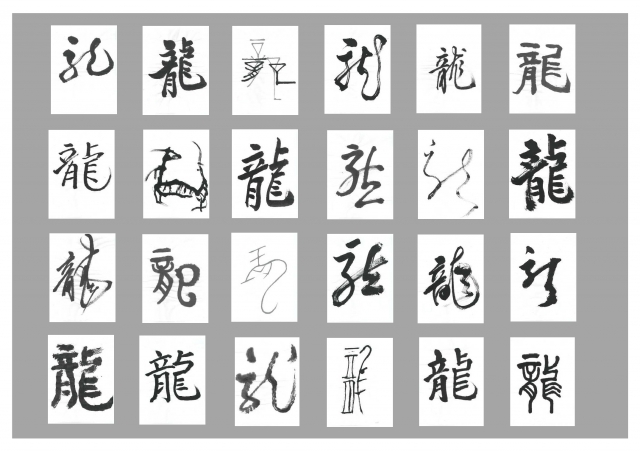 龍 龍 龍 龍 龍 龍
龍 龍 龍 龍 龍 龍
龍 龍 龍 龍 龍 龍
龍 龍 龍 龍 龍 龍